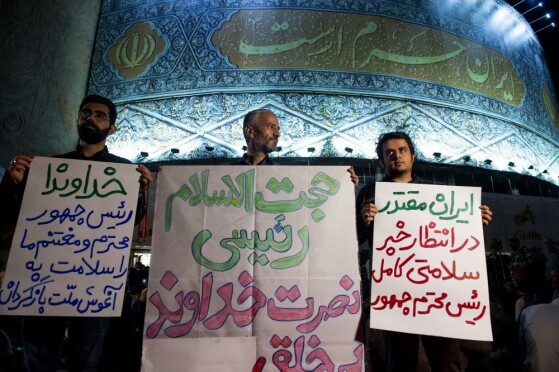 ایران حرم
ایران مقتدر
در انتظار خبر
سلامتی کامل
رئیس محترم جمهور
حجت الاسلام
رئیسی
نصرت خداوند
بر خلق
خداوندا
رئیس جمهور
محترم و مغتنم ما
را سلامت به
آغوش ملّت بازگردان